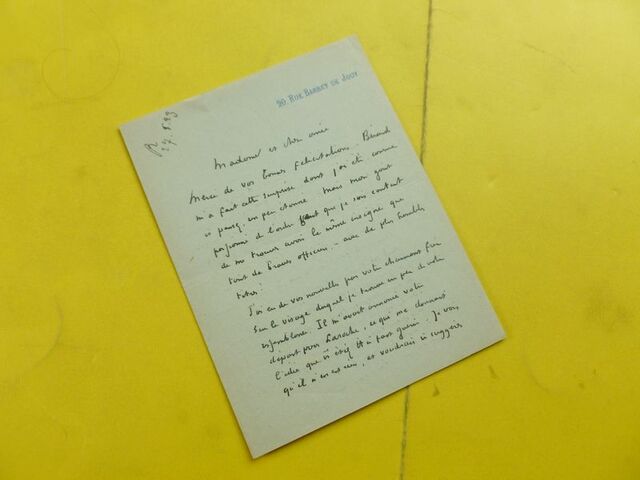 20, RUE BARBET DE JOUY
R 27.5.23
Madame et cher amie
Merci de vos bonnes félicitations. Bérard
m'a fait cette surprise dont j'ai été comme
vs pensez, un peu étonné. Mais mon gout
de l'ordre fait que je suis content
de me trouver avoir le même insigne que
tant de braves officiers - avec de plus humbles
titres!
J'ai eu de vos nouvelles par votre charmant
sur le visage duquel je trouve un peu de votre
Il m'avait annoncé votre
départ pour, ce que me donnait
l'idée que vs étiez tt à fait guérie. Je vois,
qu'il n'en est rien, et voudrais vs suggérer